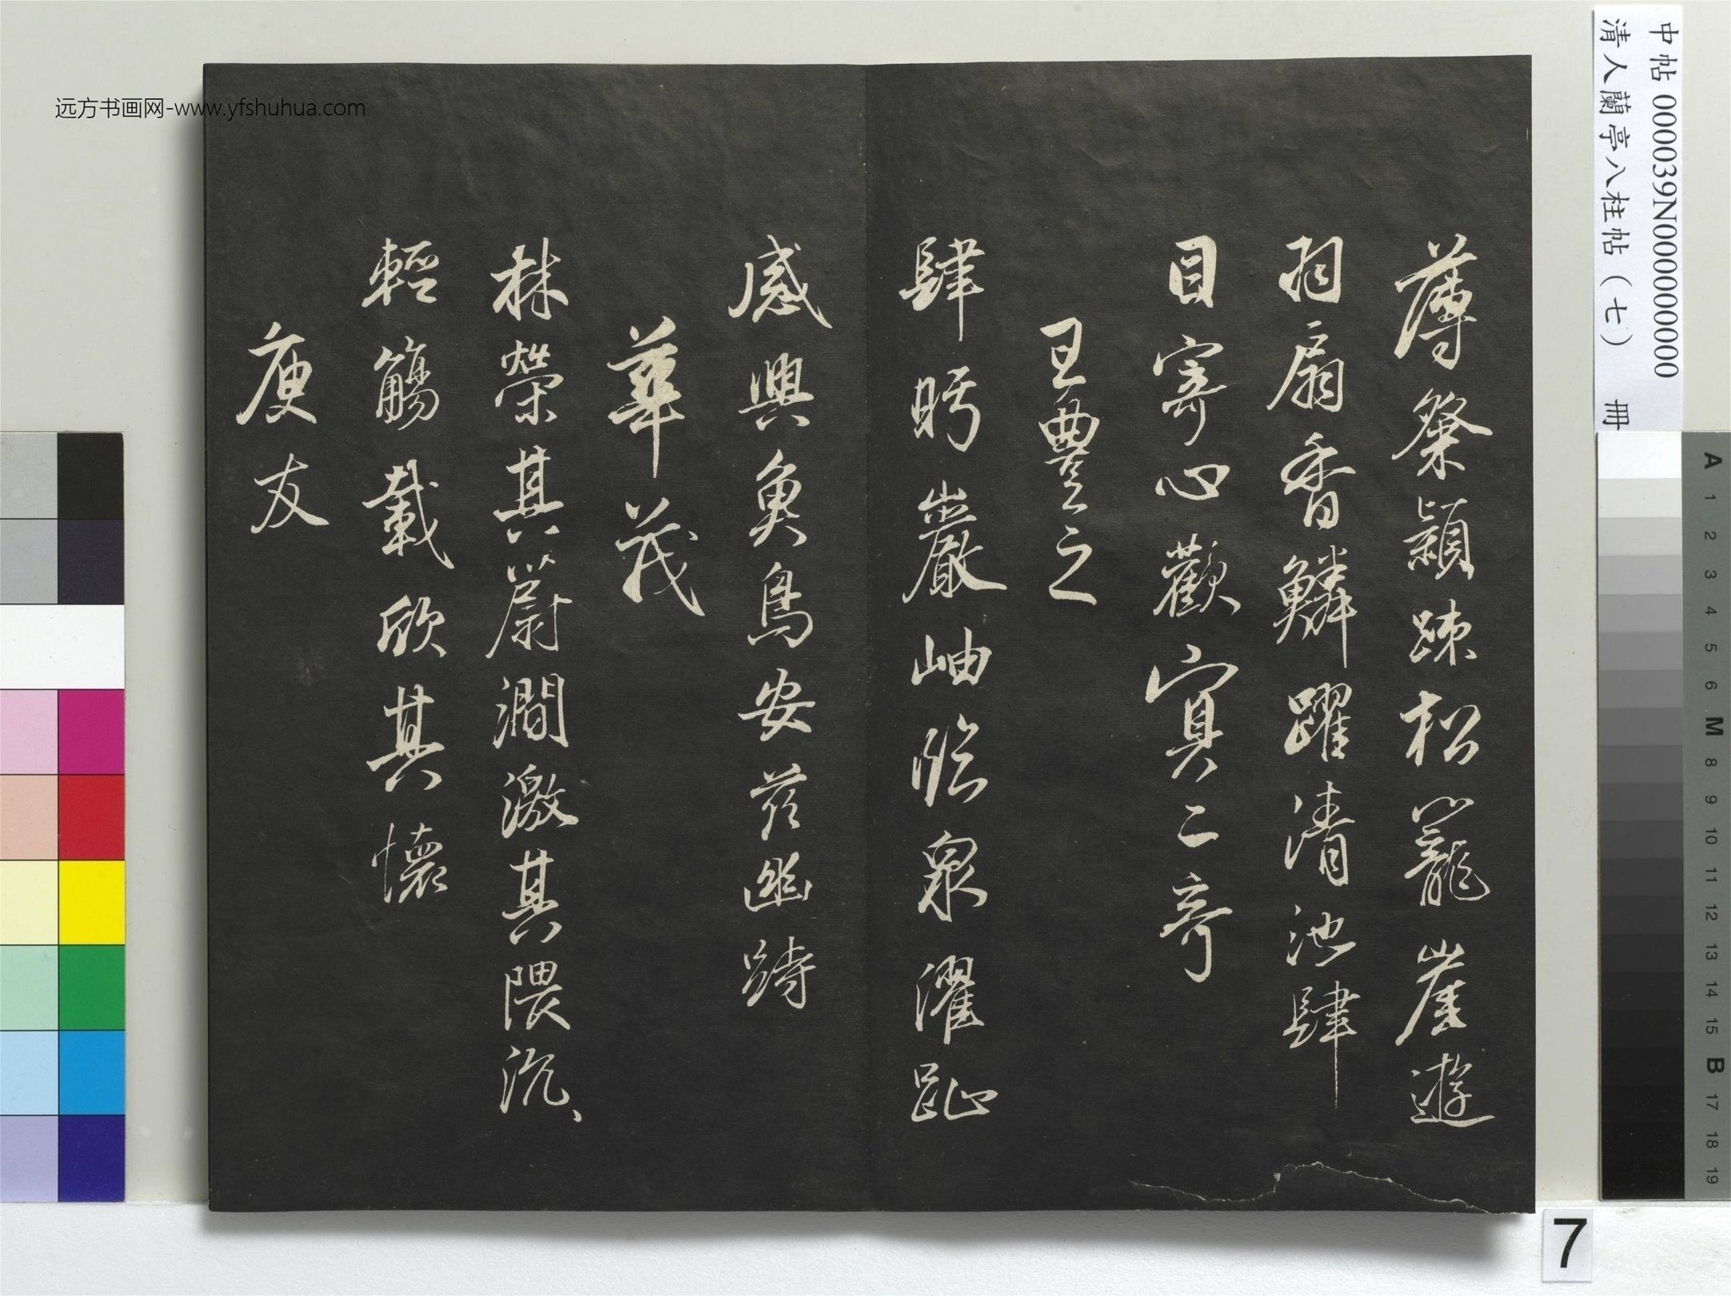 薄粲穎疎松籠崖遊
羽扇霄鱗躍清池肆
目寄心歡寘二奇
王豐之
肆眄巖岫臨泉濯趾
感興魚鳥安茲幽跱
華茂
林榮其蔚澗激其隈汎〻
輕觴載欣其懷
庾友
远方书画网-www.yfshuhua.com
中帖 000039N000000000
清人蘭亭八柱帖(七) 冊
A
1
2
3
4
5
6
M
8
9
10
11
12
13
14
15
B
17
18
19
7